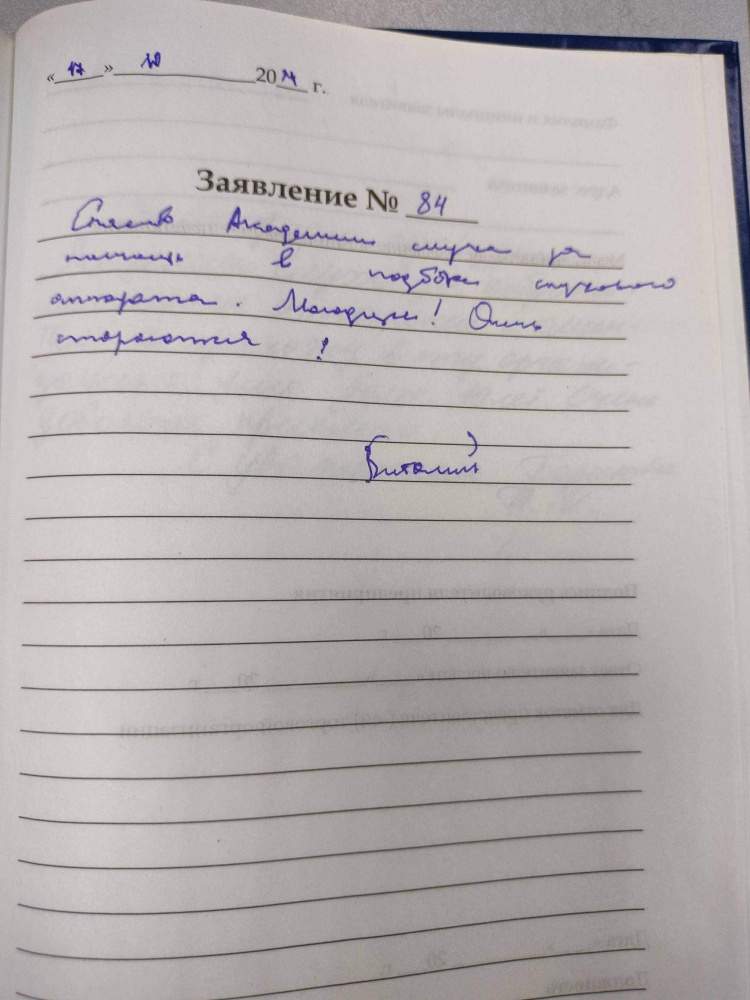 «17» 10 2024 г.
Заявление № 84
Спасибо Академии слуха за
помощь в подборе слухового
аппарата. Молодцы! Очень
стараются!
Виталий